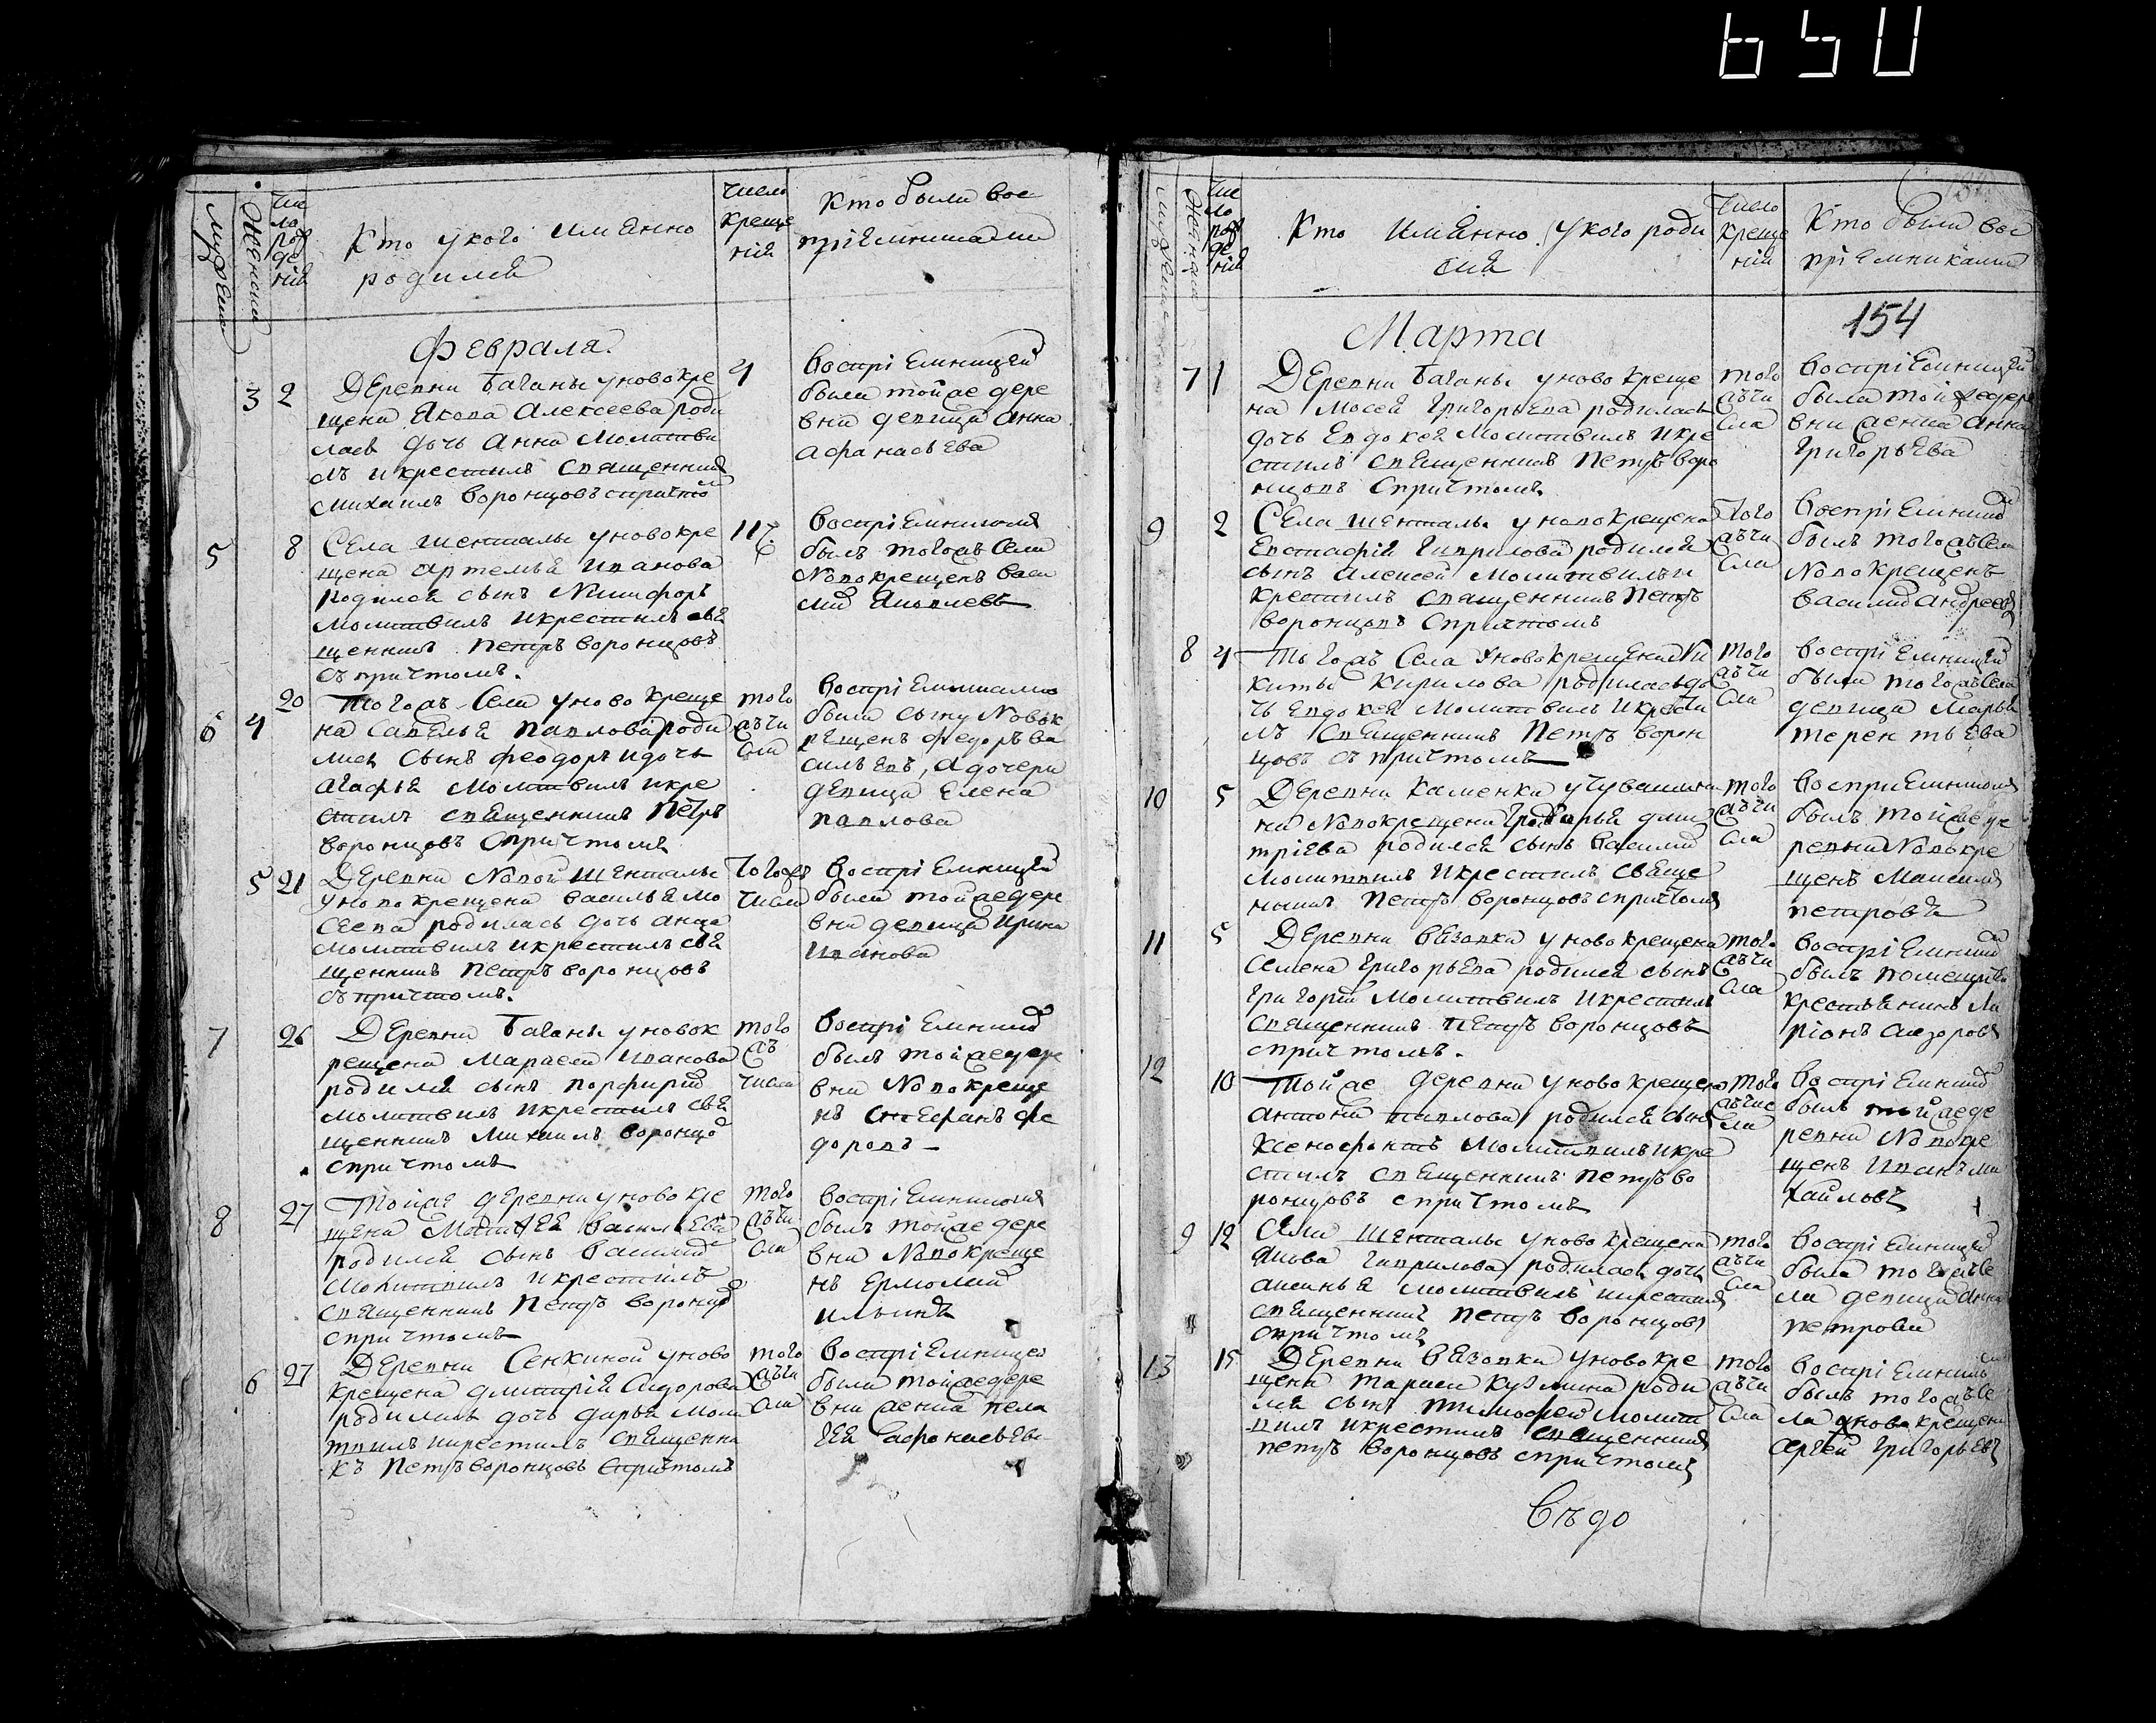 650
мужеска
женска
Чис
ло
рож
де
нія
Кто у кого имянно
родился
число
креще
нія
Кто были вос
пріемниками
Февраля
3 2
Деревни Баганы уновокре
щена Якова Алексеева роди
лась дочь Анна молитви
лъ икрестилъ священникъ
Михаилъ Воронцовъ спричто
4
воспріемницей
была тойже дере
вни девица Анна
Афанасьева
5 8
Села Шенталы уновокре
щена Артемья Иванова
родился сынъ Никифоръ
молитвилъ икрестилъ свя
щенникъ Петръ Воронцовъ
съ причтомъ.
11
воспріемникомъ
былъ тогожъ села
новокрещенъ Васи
лий Яковлевъ
6 4 20
Тогожъ Села уновокреще
на Савелья Павлова роди
лись сынъ Феодоръ идочь
Агафья молитвилъ икре
стилъ священникъ Петръ
Воронцовъ спричтомъ
того
жъ чи
сла
воспріемниками
были сыну новок
рещенъ Федоръ Ва
сильевъ, а дочери
девица Елена
Павлова
5 21
Деревни Новой Шенталы
уновокрещена Василья Мо
сеева родилась дочь Анна
молитвилъ икрестилъ свя
щенникъ Петръ Воронцовъ
съ причтомъ.
тогожъ
числа
воспріемницей
была тойжедере
вни девица Ирина
Иванова
7 26
Деревни Баганы уновок
рещена Иванова
родился сынъ Порфирий
молитвилъ икрестилъ свя
щенникъ Михаилъ Воронцо
спричтомъ
того
жъ
числа
воспріемник
былъ тойжедере
вни новокреще
нъ Стефанъ Фе
доровъ
8 27
Тойже деревни уновокре
щена Матвея Васильева
родился сынъ Василий
молитвилъ икрестилъ
священникъ Петръ Воронцо
спричтомъ
того
жъчи
сла
воспріемникомъ
былъ тойже дере
вни новокреще
нъ Ермолай
Ильинъ
6 27
Деревни Сенкиной уново
крещена Дмитрія Сидорова
родилась дочь Дарья моли
твилъ икрестилъ священни
къ Петръ Воронцовъ спричтомъ
того
жъчи
сла
воспріемницей
была тойжедере
вни женка Пела
гея Сафонасьева
мужеска
женска
Чис
ло
рож
де
нія
Кто имянно у кого роди
сия
число
креще
нія
Кто были вос
пріемниками
154
Марта
7 1
Деревни Баганы уновокреще
на Мосея Григорьева родилась
дочь Евдокея молитвилъ икре
стилъ священникъ Петръ Воро
нцовъ спричтомъ
того
жъчи
сла
воспріемницей
была тойжедере
вни женка Анна
Григорьева
9 2
Села Шенталы уновокрещена
Евстафія Гаврилова родился
сынъ Алексей молитвилъи
крестилъ священникъ Петръ
Воронцовъ спричтомъ
того
жъчи
сла
воспріемник
былъ тогожъсела
новокрещенъ
Василий Андреевъ
8 4
Тогожъ Села уновокрещена Ни
киты Кирилова родиласьдо
чь Евдокея молитвилъ икрести
лъ священникъ Петръ Ворон
цовъ съ причтомъ
того
жъчи
сла
воспріемницей
была тогожъсела
девица Марья
Терентьева
10 5
Деревни Каменки учувашени
на новокрещена Дми
тріева родился сынъ Василий
молитвилъ икрестилъ свяще
нникъ Петръ Воронцовъ спричтомъ
того
жъчи
сла
восприемникомъ
былъ тойжеде
ревни новокре
щенъ Максимъ
Петровъ
11 5
Деревни Вязовки уновокрещена
Семена Григорьева родился сынъ
Григорій молитвилъ икрестилъ
священникъ Петръ Воронцовъ
спричтомъ.
того
жъчи
сла
воспріемник
былъ
крестьянинъ Ла
ріонъ Сидоровъ
12 10
Тойже деревни уновокрещена
Антона Павлова родился сынъ
Ксенофонтъ молитвилъикре
стилъ священникъ Петръ Во
ронцовъ спричтомъ
того
жъчис
ла
воспріемник
былъ тойжеде
ревни новокре
щенъ Иванъ Ми
хайловъ
9 12
Села Шенталы уновокрещена
Якова Гаврилова родилась дочь
Аксинья молитвилъ икрестилъ
священникъ Петръ Воронцовъ
спричтомъ
того
жъчи
сла
воспріемницей
была тогожъсе
ла девица Анна
Петрова
13 15
Деревни Вязовки уновокре
щена Тараса Кузмина роди
лся сынъ Тимофей молит
вилъ икрестилъ священникъ
Петръ Воронцовъ спричтомъ
того
жъчи
сла
воспріемник
былъ тогожъсе
ла уновокрещена
Сергей Григорьевъ
Въдо